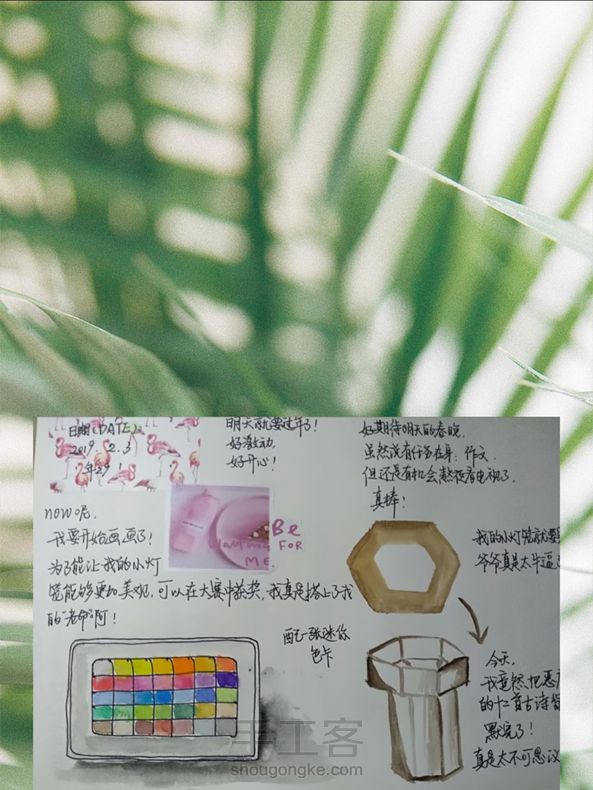 日期(DATE)
2019. 2. 3
年29!
明天就要过年了!
好激动,
好开心!
好期待明天的春晚,
虽然没有 在身: 作文,
但还是有机会熬夜看电视了.
真棒!
now呢,
我要开始画画了!
为了能让我的小灯
笼能够更加美观,可以在大赛中获奖,我真是搭上了我
的"老命"啊!
Be
FOR
ME.
配一张迷你
色卡
我的小灯笼就要
爷爷真是太牛逼
今天,
我竟然把
的十二首古诗
默完了!
真是太不可思议
手工客
shougongke.com